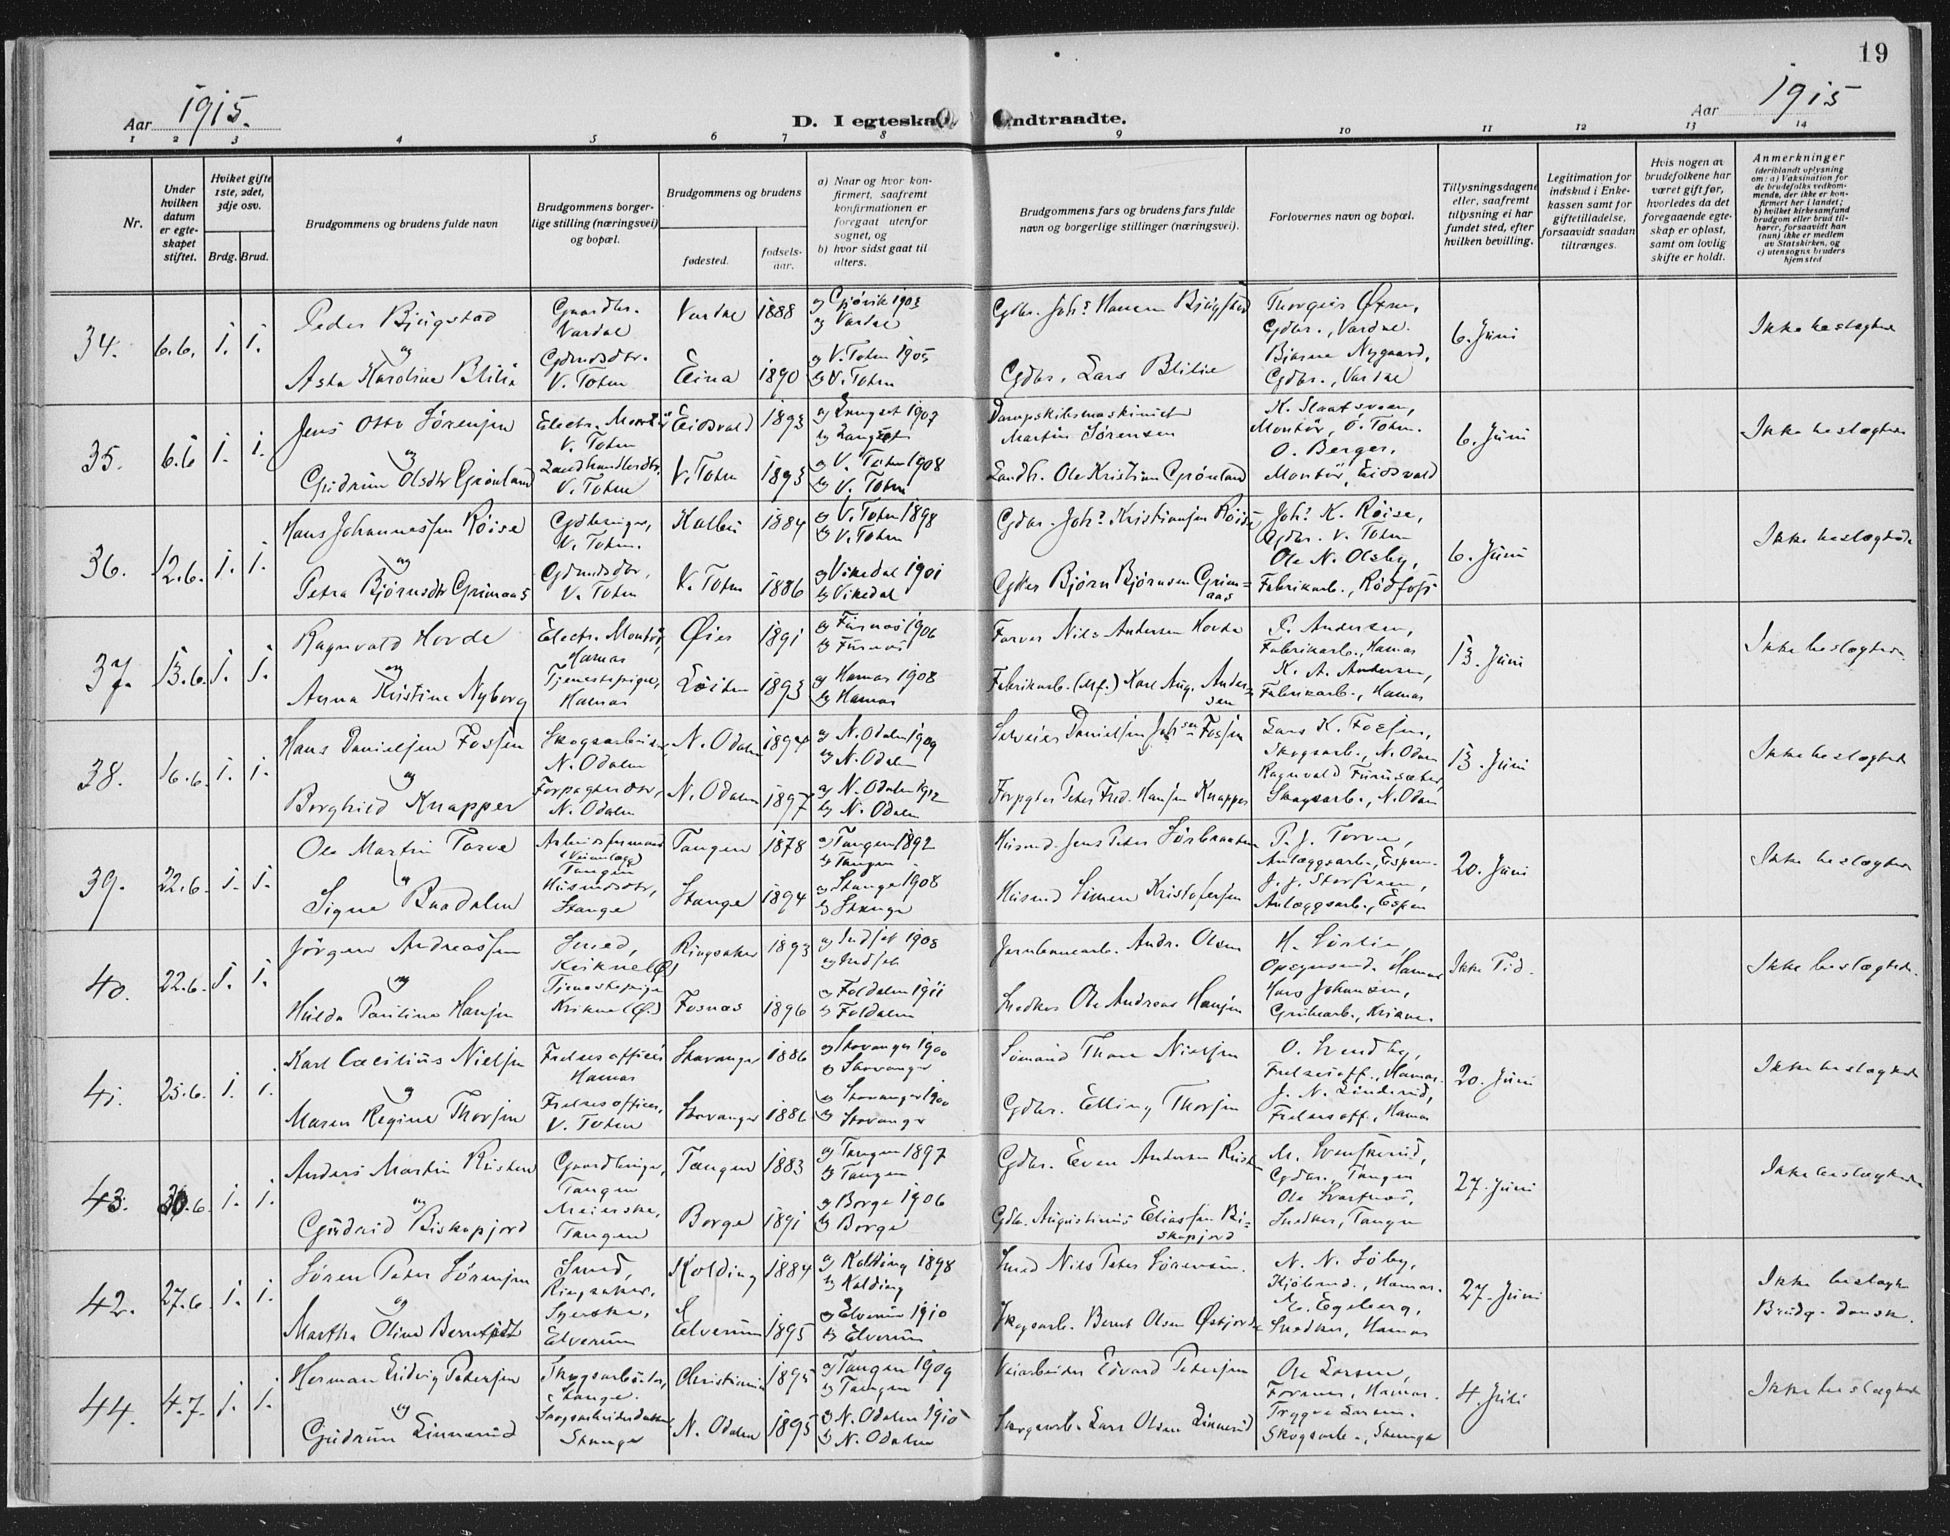 19
Aar 1915.
D. I egteska
ndtraadte.
Aar 1915
1 2 3 4 5 6 7 8 9 10 11 12 13 14
Nr.
Under hvilken datum er egteskapet stiftet.
Hviket gifte 1ste, 2det, 3dje osv.
Brdg. Brud.
Brudgommens og brudens fulde navn
Brudgommens borgerlige stilling (næringsvei) og bopæl.
Brudgommens og brudens
fødested.
fødselsaar.
a) Naar og hvor konfirmert, saafremt konfirmationen er foregaat utenfor sognet, og
b) hvor sidst gaat til alters.
Brudgommens fars og brudens fars fulde navn og borgerlige stillinger (næringsvei).
Forlovernes navn og bopæl.
Tillysningsdagene eller, saafremt tillysning ei har fundet sted, efter hvilken bevilling.
Legitimation for indskud i Enkekassen samt for giftetilladelse, forsaavidt saadan tiltrænges.
Hvis nogen av brudefolkene har været gift før, hvorledes da det foregaaende egteskap er opløst, samt om lovlig skifte er holdt.
Anmerkninger (deriblandt oplysning om: a) Vaksination for de brudefolks vedkommende, der ikke er konfirmert her i landet; b) hvilket kirkesamfund brudgom eller brud tilhører, forsaavidt han (hun) ikke er medlem av Statskirken, og c) utensogns bruders hjemsted
34. 6.6. 1. 1.
Peder Bjugstad Gaardbr. Vardal Vardal 1888 a) Gjøvik 1903 b) Vardal
og
Asta Karoline Blilie Gdmdsdtr. V. Toten Eina 1890 a) V. Toten 1905 b) V. Toten
Gdbr. Johs Hansen Bjugstad
Gdbr. Lars Blilie
Thorgeir Øxne, Gdbr., Vardal.
Bjarne Nygaard, Gdbr., Vardal
6. Juni
Ikke beslægtede
35. 6.6 1. 1.
Jens Otto Sørensen Electr. Montør V. Toten Eidsvold 1893 a) Langset 1907 b) Langset
og
Gudrun Olsdtr Grønland Landhandlerdtr. V. Toten V. Toten 1893 a) V. Toten 1908 b) V. Toten
Dampskibsmaskinist Martin Sørensen
Landh. Ole Kristian Grønland
K. Slaatsveen, Montør, Ø. Toten.
O. Berger, Montør, Eidsvold
6. Juni
Ikke beslægtede
36. 12.6. 1. 1.
Hans Johannessen Røise V. Toten. Kolbu 1884 a) V. Toten 1898 b) V. Toten
og
Petra Bjørnsdtr Grimaas V. Toten V. Toten 1886 a) Vikedal 1901 b) Vikedal
Gdbr. Johs Kristiansen Røise
Bjørn Bjørnsen Grimaas
Johs K. Røise, Gdbr. V. Toten
Ole N. Olsby, Fabrikarb., Rødfoss
6. Juni
Ikke beslægtede
37. 13.6. 1. 1.
Ragnvald Hovde Electr. Montør, Hamar Øier 1891 a) Furnes 1906 b) Furnes
og
Anna Kristine Nyborg Tjenestepige, Hamar Løiten 1893 a) Hamar 1908 b) Hamar
Farver Nils Andersen Hovde
Fabrikarb. Karl Aug. Andersen
P. Andersen, Fabrikarb., Hamar
K. A. Andersen, Fabrikarb., Hamar
13. Juni
Ikke beslægtede.
38. 16.6. 1. 1.
Hans Danielsen Fossen Skogsarbeider, N. Odalen N. Odalen 1894 a) N. Odalen 1909 b) N. Odalen
og
Borghild Knapper Forpagterdtr, N. Odalen N. Odalen 1897 a) N. Odalen 1912 b) N. Odalen
Selveier Danielsen Johsen Fossen
Forpagter Peter Fred. Hansen Knapper
Lars K. Fossen, Skogsarb., N. Odalen
Ragnvald Furuseter, Skogsarb., N. Odalen
13. Juni
Ikke beslægtede
39. 22.6. 1. 1.
Ole Martin Torve Arbeidsformand Tangen Tangen 1878 a) Tangen 1892 b) Tangen
og
Signe Baadalen Husmdsdtr, Stange Stange 1894 a) Stange 1908 b) Stange
Husmd Jens Peter Sørbraaten
Husmd Simen Kristofersen
P. J. Torve, Anlægsarb., Espen
Anlægsarb., Espen
20. Juni
Ikke beslægtede
40. 22.6. 1. 1.
Jørgen Andreassen Smed, Kvikne (Ø) Ringsaker 1893 a) Indset 1908 b) Indset
og
Hulda Pauline Hansen Tjenestepige Kvikne (Ø.) Fosnes 1896 a) Foldalen 1911 b) Foldalen
Jernbanearb. Andr. Olsen
Snedker Ole Andreas Hansen
H. Sørlie, Opsynsmd. Hamar
Hans Johansen, Grubearb., Kvikne.
Ikke Tid.
Ikke beslægtede.
41. 25.6. 1. 1.
Karl Cæcilius Nielsen Frelsesofficer Hamar Stavanger 1886 a) Stavanger 1900 b) Stavanger
og
Maren Regine Thorsen Frelsesofficer, V. Toten Stavanger 1886 a) Stavanger 1900 b) Stavanger
Sømand Thore Nielsen
Gdbr. Elling Thorsen
O. Sundby, Frelsesoff., Hamar.
J. N. Linderud, Frelsesoff., Hamar
20. Juni
Ikke beslægtede
43. 30.6. 1. 1.
Anders Martin Kristen Tangen Tangen 1883 a) Tangen 1897 b) Tangen
og
Gudrid Biskopjord Meierske, Tangen Borge 1891 a) Borge 1906 b) Borge
Gdbr. Even Andersen
Gdbr. Augustinus Eliassen Biskopjord
M. Svenskerud, Gdbr. Tangen
Ole Svartnes, Snedker, Tangen
27. Juni
Ikke beslægtede
42. 27.6. 1. 1.
Søren Peter Sørensen Smed, Ringsaker, Kolding 1884 a) Kolding 1898 b) Kolding
og
Martha Oline Berntsdt Syerske, Elverum Elverum 1895 a) Elverum 1910 b) Elverum
Smed Nils Peter Sørensen.
Skogsarb. Bernt Olsen Østfjorde
N. N. Søby, Kjøbmd., Hamar.
M. Egeberg, Snedker, Hamar
27. Juni
Ikke beslægtede
Brudg. dansk.
44. 4.7. 1. 1.
Herman Ludvig Petersen Skogsarbeider, Stange. Christiania 1895 a) Tangen 1909 b) Tangen
og
Gudrun Linnerud Skogsarbeiderdatter Stange N. Odalen 1895 a) N. Odalen 1910 b) N. Odalen
Veiarbeider Edvard Petersen
Skogsarb. Lars Olsen Linnerud
Ole Larsen, Hamar.
Trygve Larsen. Skogsarb., Stange
4 Juli
Ikke beslægtede